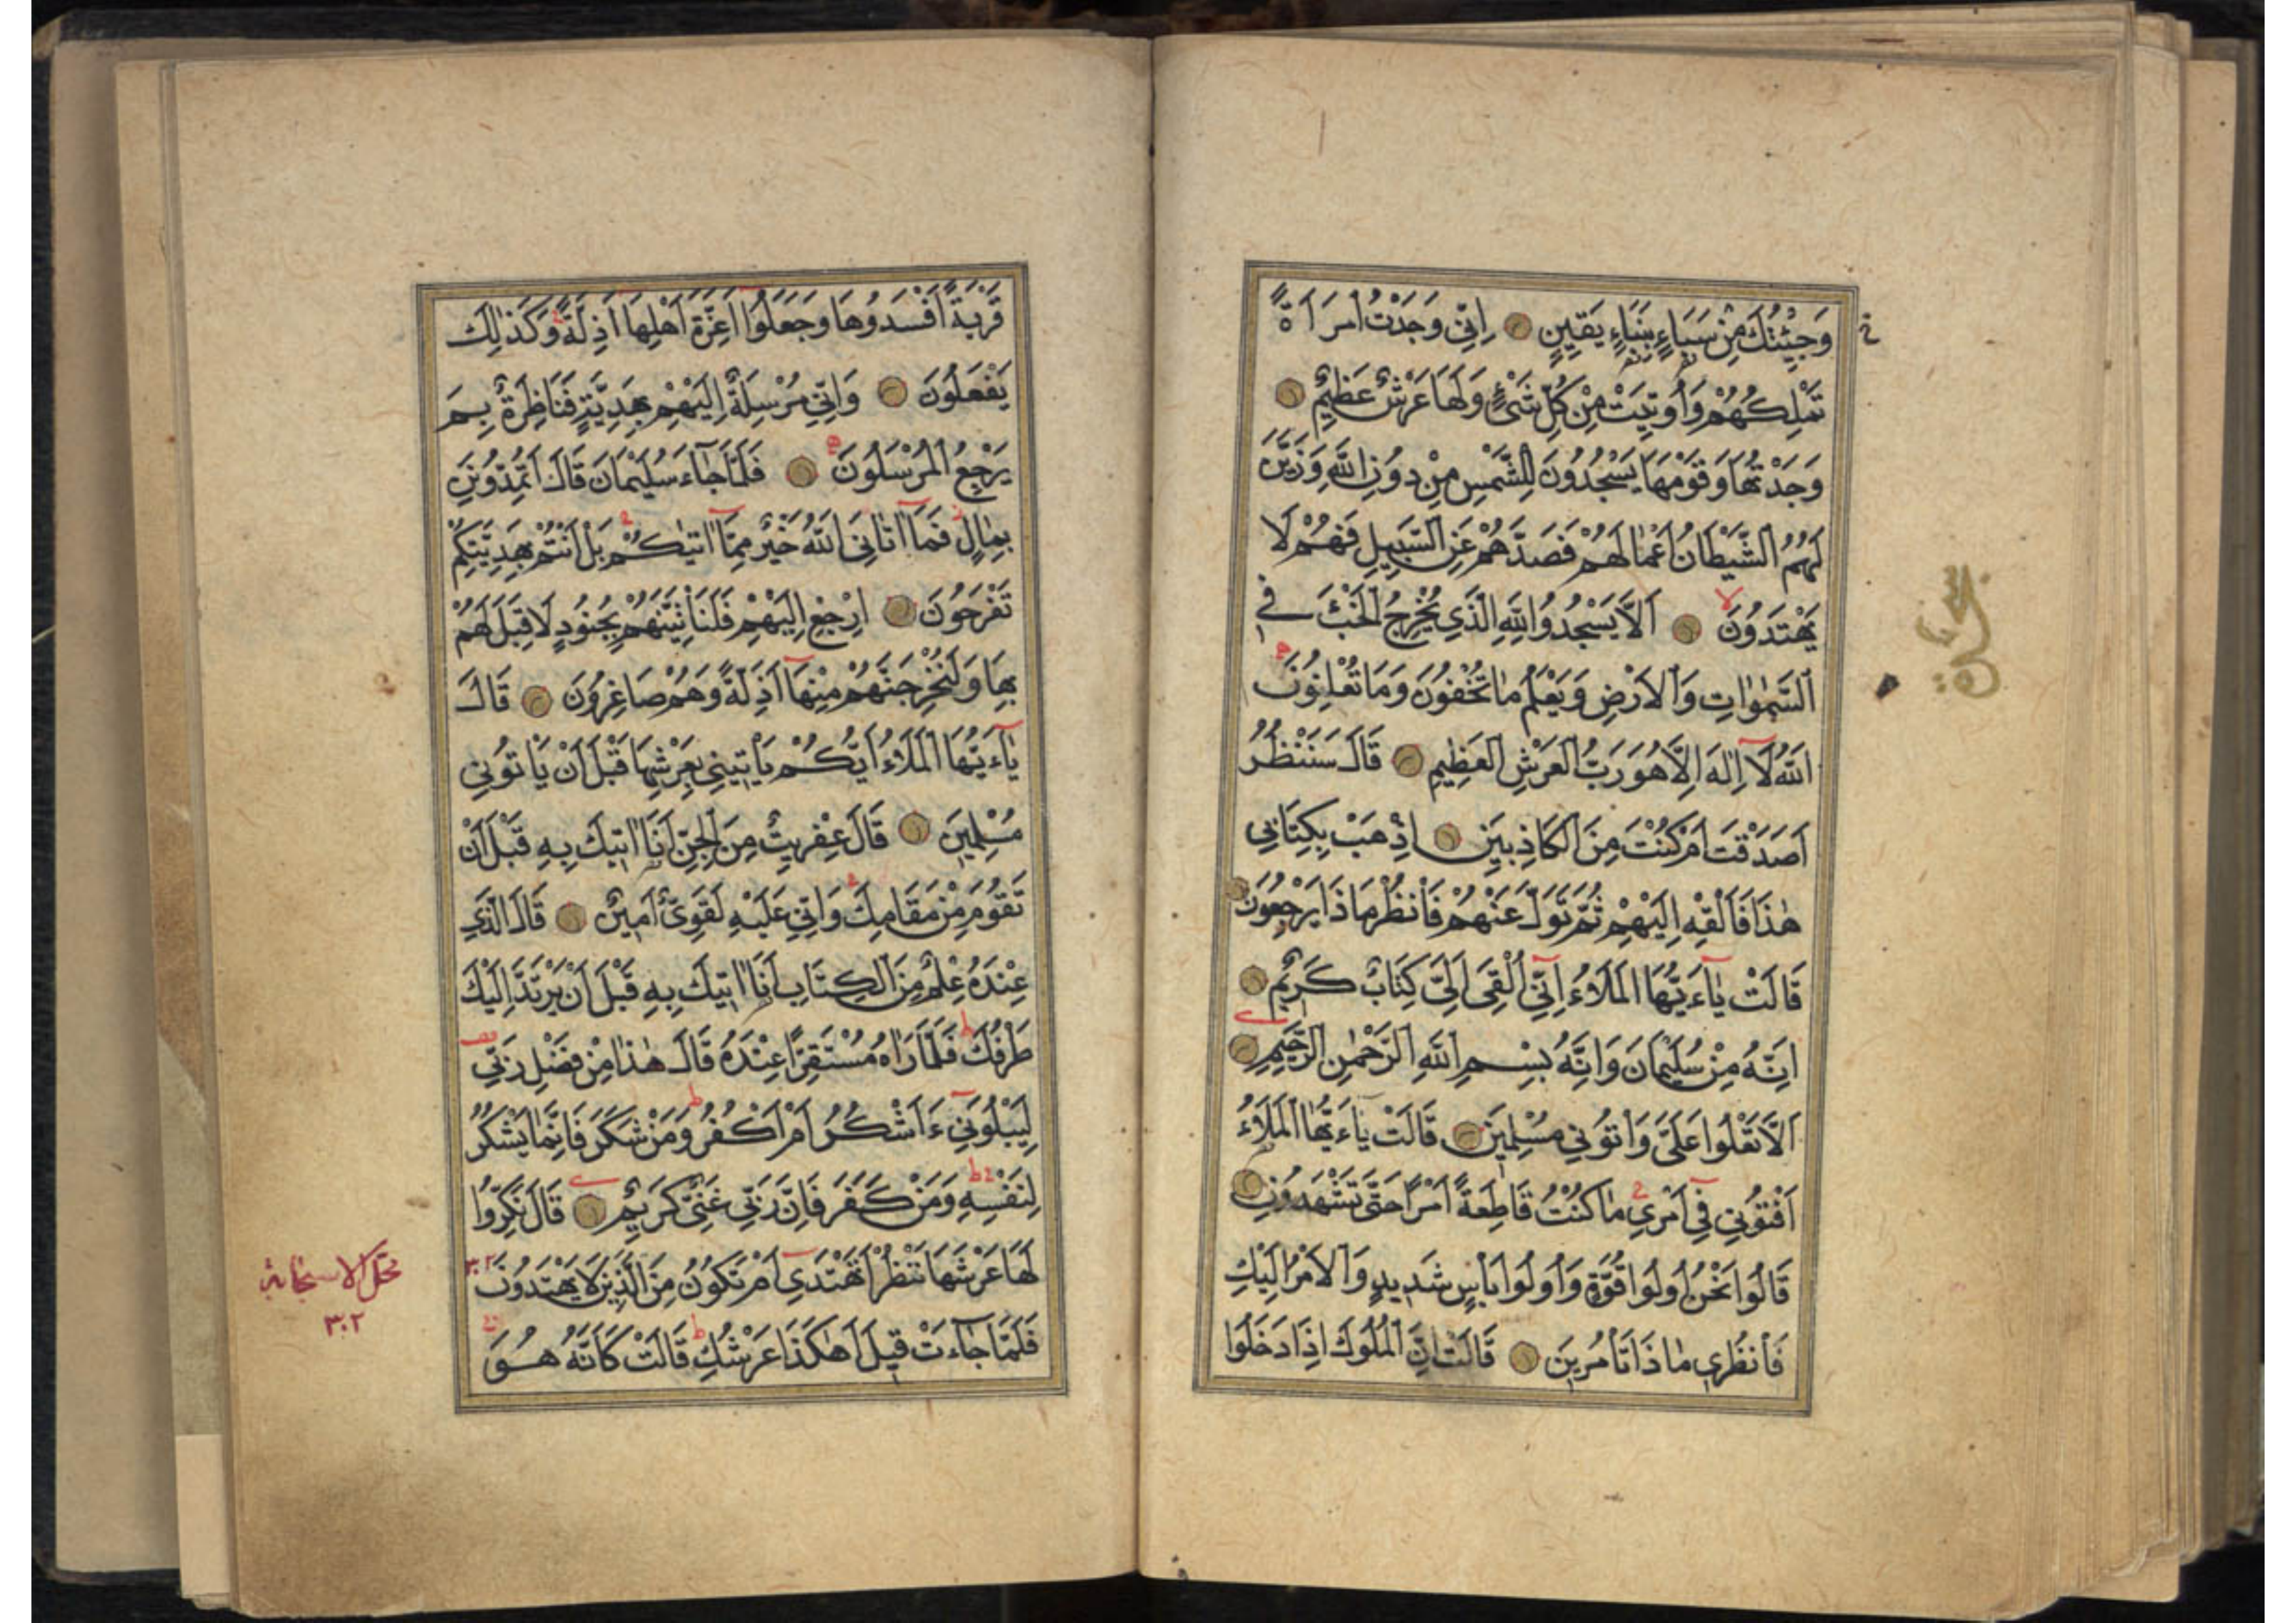 وَجِئْتُكَ مِنْ سَبَاءٍ بِنَبَاءٍ يَقِينٍ اِنِّي وَجَدْتُ امْرَاَةً
تَمْلِكُهُمْ وَاُوتِيَتْ مِنْ كُلِّ شَيْءٍ وَلَهَا عَرْشٌ عَظِيمٌ
وَجَدْتُهَا وَقَوْمَهَا يَسْجُدُونَ لِلشَّمْسِ مِنْ دُونِ اللّٰهِ وَزَيَّنَ
لَهُمُ الشَّيْطَانُ اَعْمَالَهُمْ فَصَدَّهُمْ عَنِ السَّبِيلِ فَهُمْ لَا
يَهْتَدُونَ اَلَّا يَسْجُدُوا لِلّٰهِ الَّذِي يُخْرِجُ الْخَبْءَ فِي
السَّمٰوَاتِ وَالْاَرْضِ وَيَعْلَمُ مَا تُخْفُونَ وَمَا تُعْلِنُونَ
اَللّٰهُ لَا اِلٰهَ اِلَّا هُوَ رَبُّ الْعَرْشِ الْعَظِيمِ قَالَ سَنَنْظُرُ
اَصَدَقْتَ اَمْ كُنْتَ مِنَ الْكَاذِبِينَ اِذْهَبْ بِكِتَابِي
هٰذَا فَاَلْقِهْ اِلَيْهِمْ ثُمَّ تَوَلَّ عَنْهُمْ فَانْظُرْ مَاذَا يَرْجِعُونَ
قَالَتْ يَٓاءَيُّهَا الْمَلَاءُ اِنِّٓي اُلْقِيَ اِلَيَّ كِتَابٌ كَرِيمٌ
اِنَّهُ مِنْ سُلَيْمَانَ وَاِنَّهُ بِسْمِ اللّٰهِ الرَّحْمٰنِ الرَّحِيمِ
اَلَّا تَعْلُوا عَلَيَّ وَاْتُونِي مُسْلِمِينَ قَالَتْ يَاءَيُّهَا الْمَلَاءُ
اَفْتُونِي فِٓي اَمْرِي مَا كُنْتُ قَاطِعَةً اَمْرًا حَتّٰى تَشْهَدُونِ
قَالُوا نَحْنُ اُولُوا قُوَّةٍ وَاُولُوا بَاْسٍ شَدِيدٍ وَالْاَمْرُ اِلَيْكِ
فَانْظُرِي مَاذَا تَاْمُرِينَ قَالَتْ اِنَّ الْمُلُوكَ اِذَا دَخَلُوا
قَرْيَةً اَفْسَدُوهَا وَجَعَلُٓوا اَعِزَّةَ اَهْلِهَٓا اَذِلَّةً وَكَذٰلِكَ
يَفْعَلُونَ وَاِنِّي مُرْسِلَةٌ اِلَيْهِمْ بِهَدِيَّةٍ فَنَاظِرَةٌ بِمَ
يَرْجِعُ الْمُرْسَلُونَ فَلَمَّا جَٓاءَ سُلَيْمَانَ قَالَ اَتُمِدُّونَنِ
بِمَالٍ فَمَٓا اٰتَانِيَ اللّٰهُ خَيْرٌ مِمَّٓا اٰتٰيكُمْ بَلْ اَنْتُمْ بِهَدِيَّتِكُمْ
تَفْرَحُونَ اِرْجِعْ اِلَيْهِمْ فَلَنَاْتِيَنَّهُمْ بِجُنُودٍ لَا قِبَلَ لَهُمْ
بِهَا وَلَنُخْرِجَنَّهُمْ مِنْهَٓا اَذِلَّةً وَهُمْ صَاغِرُونَ قَالَ
يَٓاءَيُّهَا الْمَلَاءُ اَيُّكُمْ يَاْتِينِي بِعَرْشِهَا قَبْلَ اَنْ يَاْتُونِي
مُسْلِمِينَ قَالَ عِفْرِيتٌ مِنَ الْجِنِّ اَنَا اٰتِيكَ بِهِ قَبْلَ اَنْ
تَقُومَ مِنْ مَقَامِكَ وَاِنِّي عَلَيْهِ لَقَوِيٌّ اَمِينٌ قَالَ الَّذِي
عِنْدَهُ عِلْمٌ مِنَ الْكِتَابِ اَنَا اٰتِيكَ بِهِ قَبْلَ اَنْ يَرْتَدَّ اِلَيْكَ
طَرْفُكَ فَلَمَّا رَاٰهُ مُسْتَقِرًّا عِنْدَهُ قَالَ هٰذَا مِنْ فَضْلِ رَبِّي
لِيَبْلُوَنِٓي ءَاَشْكُرُ اَمْ اَكْفُرُ وَمَنْ شَكَرَ فَاِنَّمَا يَشْكُرُ
لِنَفْسِهِ وَمَنْ كَفَرَ فَاِنَّ رَبِّي غَنِيٌّ كَرِيمٌ قَالَ نَكِّرُوا
لَهَا عَرْشَهَا نَنْظُرْ اَتَهْتَدِٓي اَمْ تَكُونُ مِنَ الَّذِينَ لَا يَهْتَدُونَ
فَلَمَّا جَٓاءَتْ قِيلَ اَهٰكَذَا عَرْشُكِ قَالَتْ كَاَنَّهُ هُوَ
٣٠٢